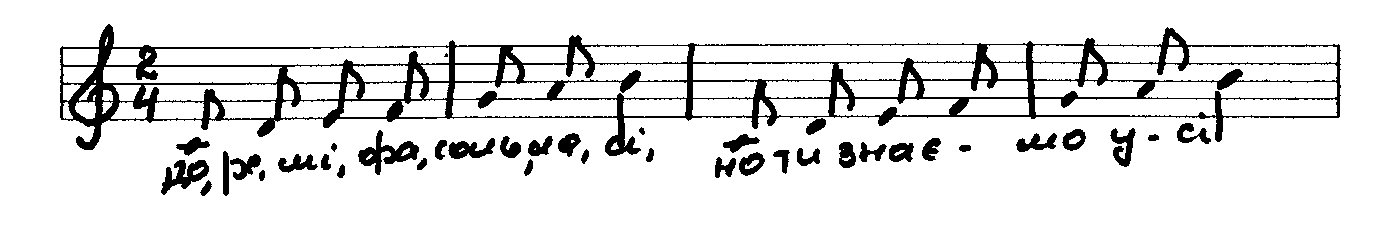 2
4
до, ре, мі, фа, соль, ля, сі, ноти знає - мо у - сі